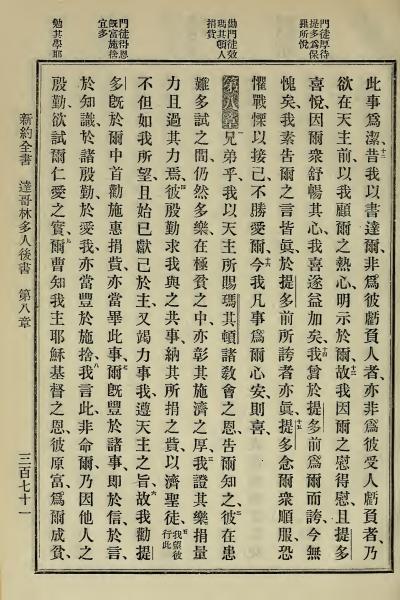 門徒厚待
提多爲保
羅所悅
勸門徒效
瑪其頓人
捐貲
門徒得恩
旣富施捨
宜多
勉其學耶
此事爲潔、十二昔我以書達爾、非爲彼虧負人者、亦非爲彼受人虧負者、乃
欲在天主前、以我顧爾之熱心、明示於爾、十三故我因爾之慰得慰、且提多
喜悅、因爾衆舒暢其心、我喜遂益加矣、十四我曾於提多前爲爾而誇、今無
愧矣、我素吿爾之言皆眞、於提多前所誇者亦眞、十五提多念爾衆順服、恐
懼戰慄以接己、不勝愛爾、十六今我凡事爲爾心安則喜、
第八章 一兄弟乎、我以天主所賜瑪其頓諸敎會之恩、吿爾知之、二彼在患
難多試之間、仍然多樂、在極貧之中、亦彰其施濟之厚、三我證其樂捐量
力、且過其力焉、四彼殷勤求我與之共事、納其所捐之貲、以濟聖徒、五我望彼行此
不但如我所望、且始已獻己於主、又竭力事我、遵天主之旨、六故我勸提
多、旣於爾中首勸施惠捐貲、亦當畢此事、七爾旣豐於諸事、卽於信、於言、
於知識、於諸殷勤、於愛我、亦當豐於施捨、八我言此非命爾、乃因他人之
殷勤、欲試爾仁愛之實、九爾曹知我主耶穌基督之恩、彼原富、爲爾成貧、
新約全書 達哥林多人後書 第八章 三百七十一